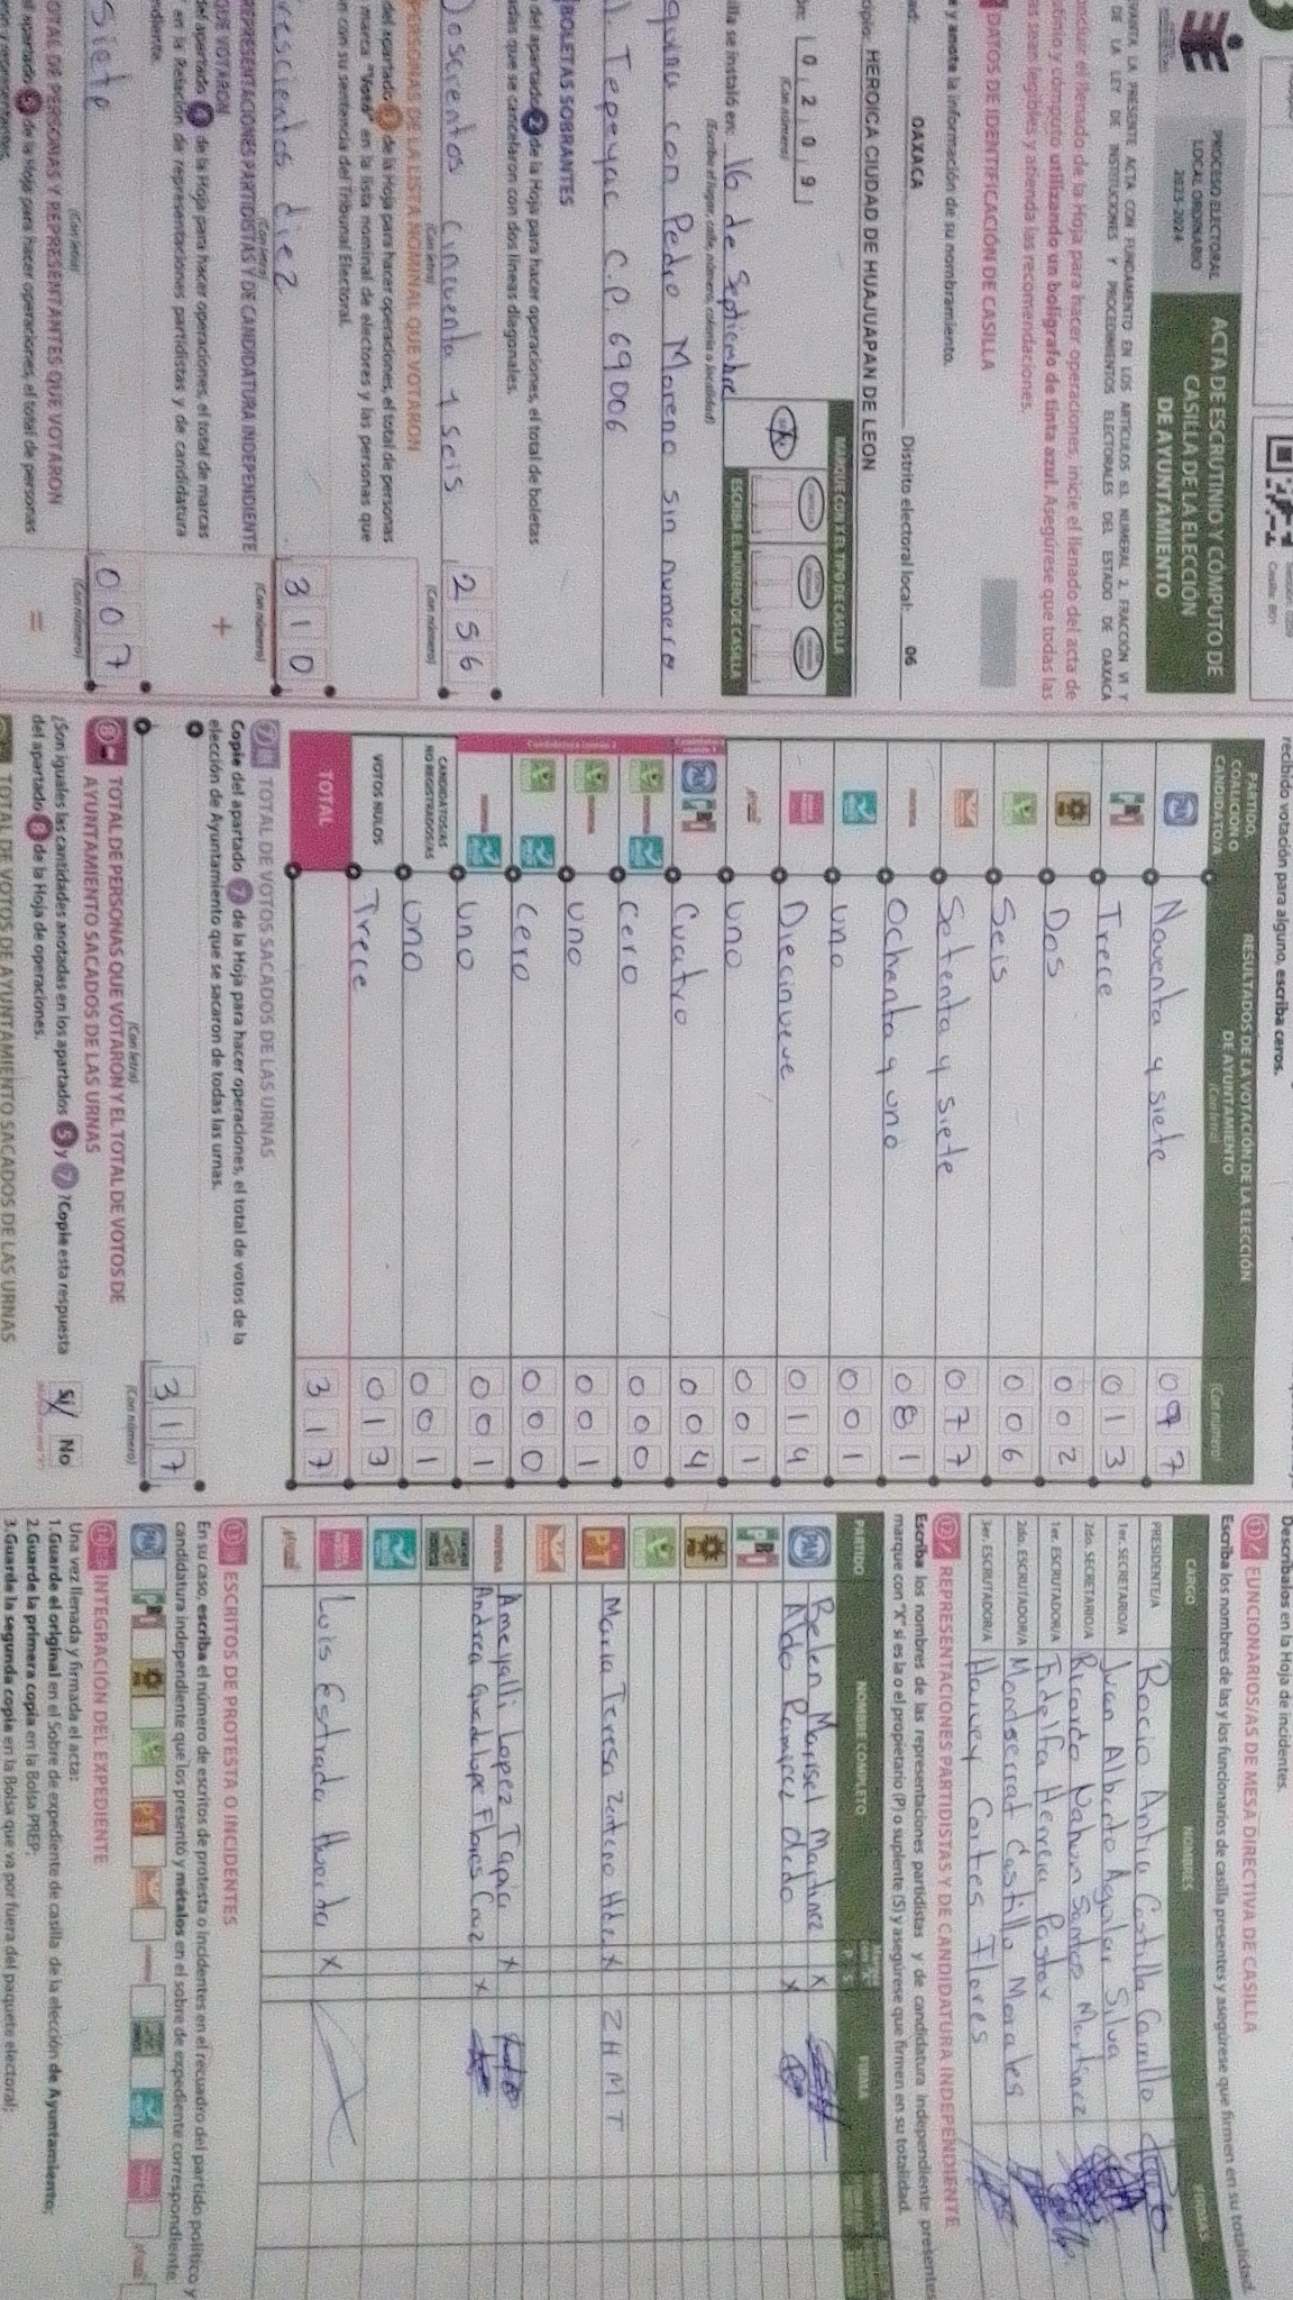 PROCESO ELECTORAL
LOCAL ORDINARIO
2023-2024
ACTA DE ESCRUTINIO Y CÓMPUTO DE
CASILLA DE LA ELECCIÓN
DE AYUNTAMIENTO
VANTA LA PRESENTE ACTA CON FUNDAMENTO EN LOS ARTÍCULOS 63, NUMERAL 2, FRACCIÓN VI Y
DE LA LEY DE INSTITUCIONES Y PROCEDIMIENTOS ELECTORALES DEL ESTADO DE OAXACA
ncluir el llenado de la Hoja para hacer operaciones, inicie el llenado del acta de
utinio y cómputo utilizando un bolígrafo de tinta azul. Asegúrese que todas las
as sean legibles y atienda las recomendaciones.
DATOS DE IDENTIFICACIÓN DE CASILLA
e y anote la información de su nombramiento.
ad: OAXACA Distrito electoral local: 06
cipio: HEROICA CIUDAD DE HUAJUAPAN DE LEON
ón: 0 2 0 9
(Con número)
MARQUE CON X EL TIPO DE CASILLA
ESCRIBA EL NÚMERO DE CASILLA
illa se instaló en: 16 de Septiembre
(Escriba el lugar, calle, número, colonia o localidad)
quina con Pedro Moreno sin numero
l. Tepeyac C.P. 69006
BOLETAS SOBRANTES
del apartado 2 de la Hoja para hacer operaciones, el total de boletas
adas que se cancelaron con dos líneas diagonales.
Doscientos Cincuenta y seis 2 5 6
(Con letra) (Con número)
PERSONAS DE LA LISTA NOMINAL QUE VOTARON
del apartado 3 de la Hoja para hacer operaciones, el total de personas
marca "Votó" en la lista nominal de electores y las personas que
n con su sentencia del Tribunal Electoral.
rescientos diez 3 1 0
(Con letra) (Con número)
REPRESENTACIONES PARTIDISTAS Y DE CANDIDATURA INDEPENDIENTE
QUE VOTARON
del apartado 4 de la Hoja para hacer operaciones, el total de marcas
en la Relación de representaciones partidistas y de candidatura
ndiente.
+
siete 0 0 7
(Con letra) (Con número)
OTAL DE PERSONAS Y REPRESENTANTES QUE VOTARON
el apartado 5 de la Hoja para hacer operaciones, el total de personas
=
recibido votación para alguno, escriba ceros.
PARTIDO,
COALICIÓN O
CANDIDATO/A
RESULTADOS DE LA VOTACIÓN DE LA ELECCIÓN
DE AYUNTAMIENTO
(Con letra) (Con número)
PAN Noventa y siete 0 9 7
PRI Trece 0 1 3
Dos 0 0 2
Seis 0 0 6
Setenta y siete 0 7 7
morena Ochenta y uno 0 8 1
uno 0 0 1
Diecinueve 0 1 9
uno 0 0 1
PAN PRI Cuatro 0 0 4
cero 0 0 0
uno 0 0 1
Cero 0 0 0
uno 0 0 1
CANDIDATOS/AS
NO REGISTRADOS/AS uno 0 0 1
VOTOS NULOS Trece 0 1 3
TOTAL 3 1 7
7 TOTAL DE VOTOS SACADOS DE LAS URNAS
Copie del apartado 7 de la Hoja para hacer operaciones, el total de votos de la
elección de Ayuntamiento que se sacaron de todas las urnas.
3 1 7
(Con letra) (Con número)
8 TOTAL DE PERSONAS QUE VOTARON Y EL TOTAL DE VOTOS DE
AYUNTAMIENTO SACADOS DE LAS URNAS
¿Son iguales las cantidades anotadas en los apartados 5 y 7? Copie esta respuesta
del apartado 8 de la Hoja de operaciones.
Sí No
TOTAL DE VOTOS DE AYUNTAMIENTO SACADOS DE LAS URNAS
Descríbalos en la Hoja de incidentes.
11 FUNCIONARIOS/AS DE MESA DIRECTIVA DE CASILLA
Escriba los nombres de las y los funcionarios de casilla presentes y asegúrese que firmen en su totalidad.
CARGO NOMBRES FIRMAS
PRESIDENTE/A Rocio Antia Castillo Carrillo
1er. SECRETARIO/A Juan Alberto Aguilar Silva
2do. SECRETARIO/A Ricardo Nahum Santos Martinez
1er. ESCRUTADOR/A Fidelfa Herrera Pastor
2do. ESCRUTADOR/A Montserrat Castillo Morales
3er. ESCRUTADOR/A Harvey Cortes Flores
12 REPRESENTACIONES PARTIDISTAS Y DE CANDIDATURA INDEPENDIENTE
Escriba los nombres de las representaciones partidistas y de candidatura independiente presentes
marque con "X" si es la o el propietario (P) o suplente (S) y asegúrese que firmen en su totalidad.
PARTIDO NOMBRE COMPLETO P S FIRMA
PAN Belen Marisel Martinez X
Aldo Ramirez X
PRI
PT Maria Teresa Zenteno Hdez X ZHMT
morena Ameyalli Lopez Tapia X
Andrea Guadalupe Flores Cruz X
Luis Estrada Huerta X
13 ESCRITOS DE PROTESTA O INCIDENTES
En su caso, escriba el número de escritos de protesta o incidentes en el recuadro del partido político y
candidatura independiente que los presentó y métalos en el sobre de expediente correspondiente.
14 INTEGRACIÓN DEL EXPEDIENTE
Una vez llenada y firmada el acta:
1.Guarde el original en el Sobre de expediente de casilla de la elección de Ayuntamiento;
2.Guarde la primera copia en la Bolsa PREP;
3.Guarde la segunda copia en la Bolsa que va por fuera del paquete electoral;